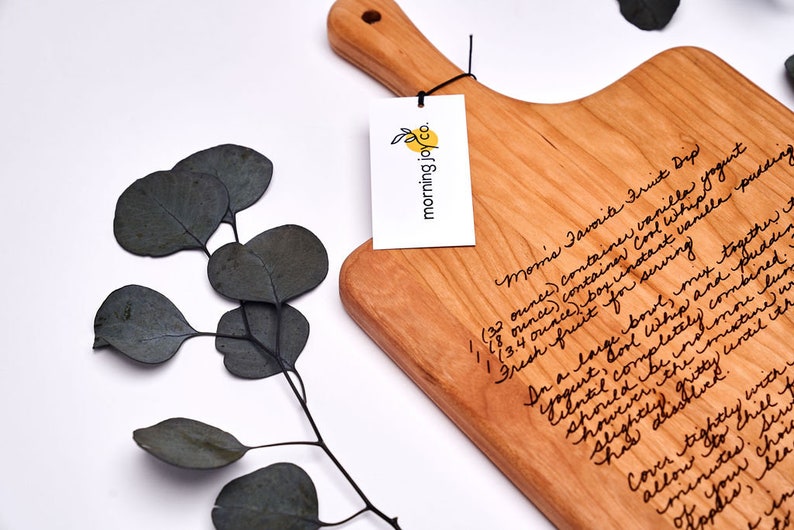 morning joy co.
Mom's Favorite Fruit Dip
1 (32 ounce) container vanilla yogurt
1 (8 ounce) container Cool Whip
1 (3.4 ounce) box instant vanilla pudding
Fresh fruit for serving
In a large bowl, mix together
yogurt, Cool Whip and pudding
until completely combined.
should be no more
however, the mixture
slightly gritty until
has dissolved
Cover tightly with
allow to chill
minutes.
your